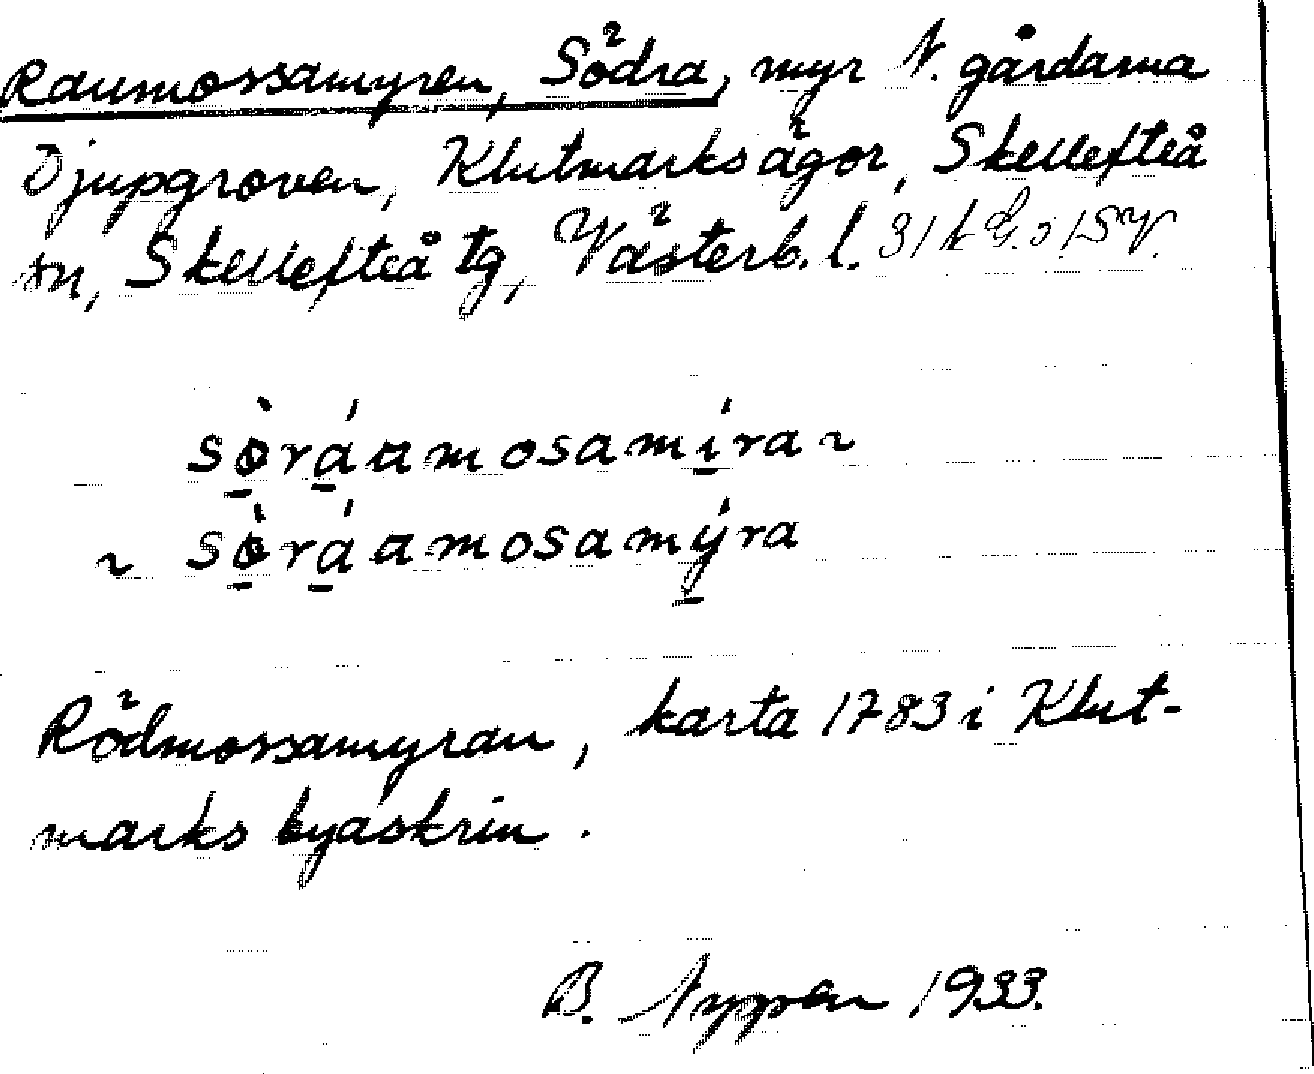 Raumossamyren, Södra, myr N. gårdarna
Djupgroven, Klutmarks ägor, Skellefteå
sn, Skellefteå tg, Västerb. l.
sö̀ráamosamíra ~
~ sö̀ráamosamýra
Rödmossamyran, karta 1783 i Klut-
marks byaskrin.
B. Nyppen 1933.